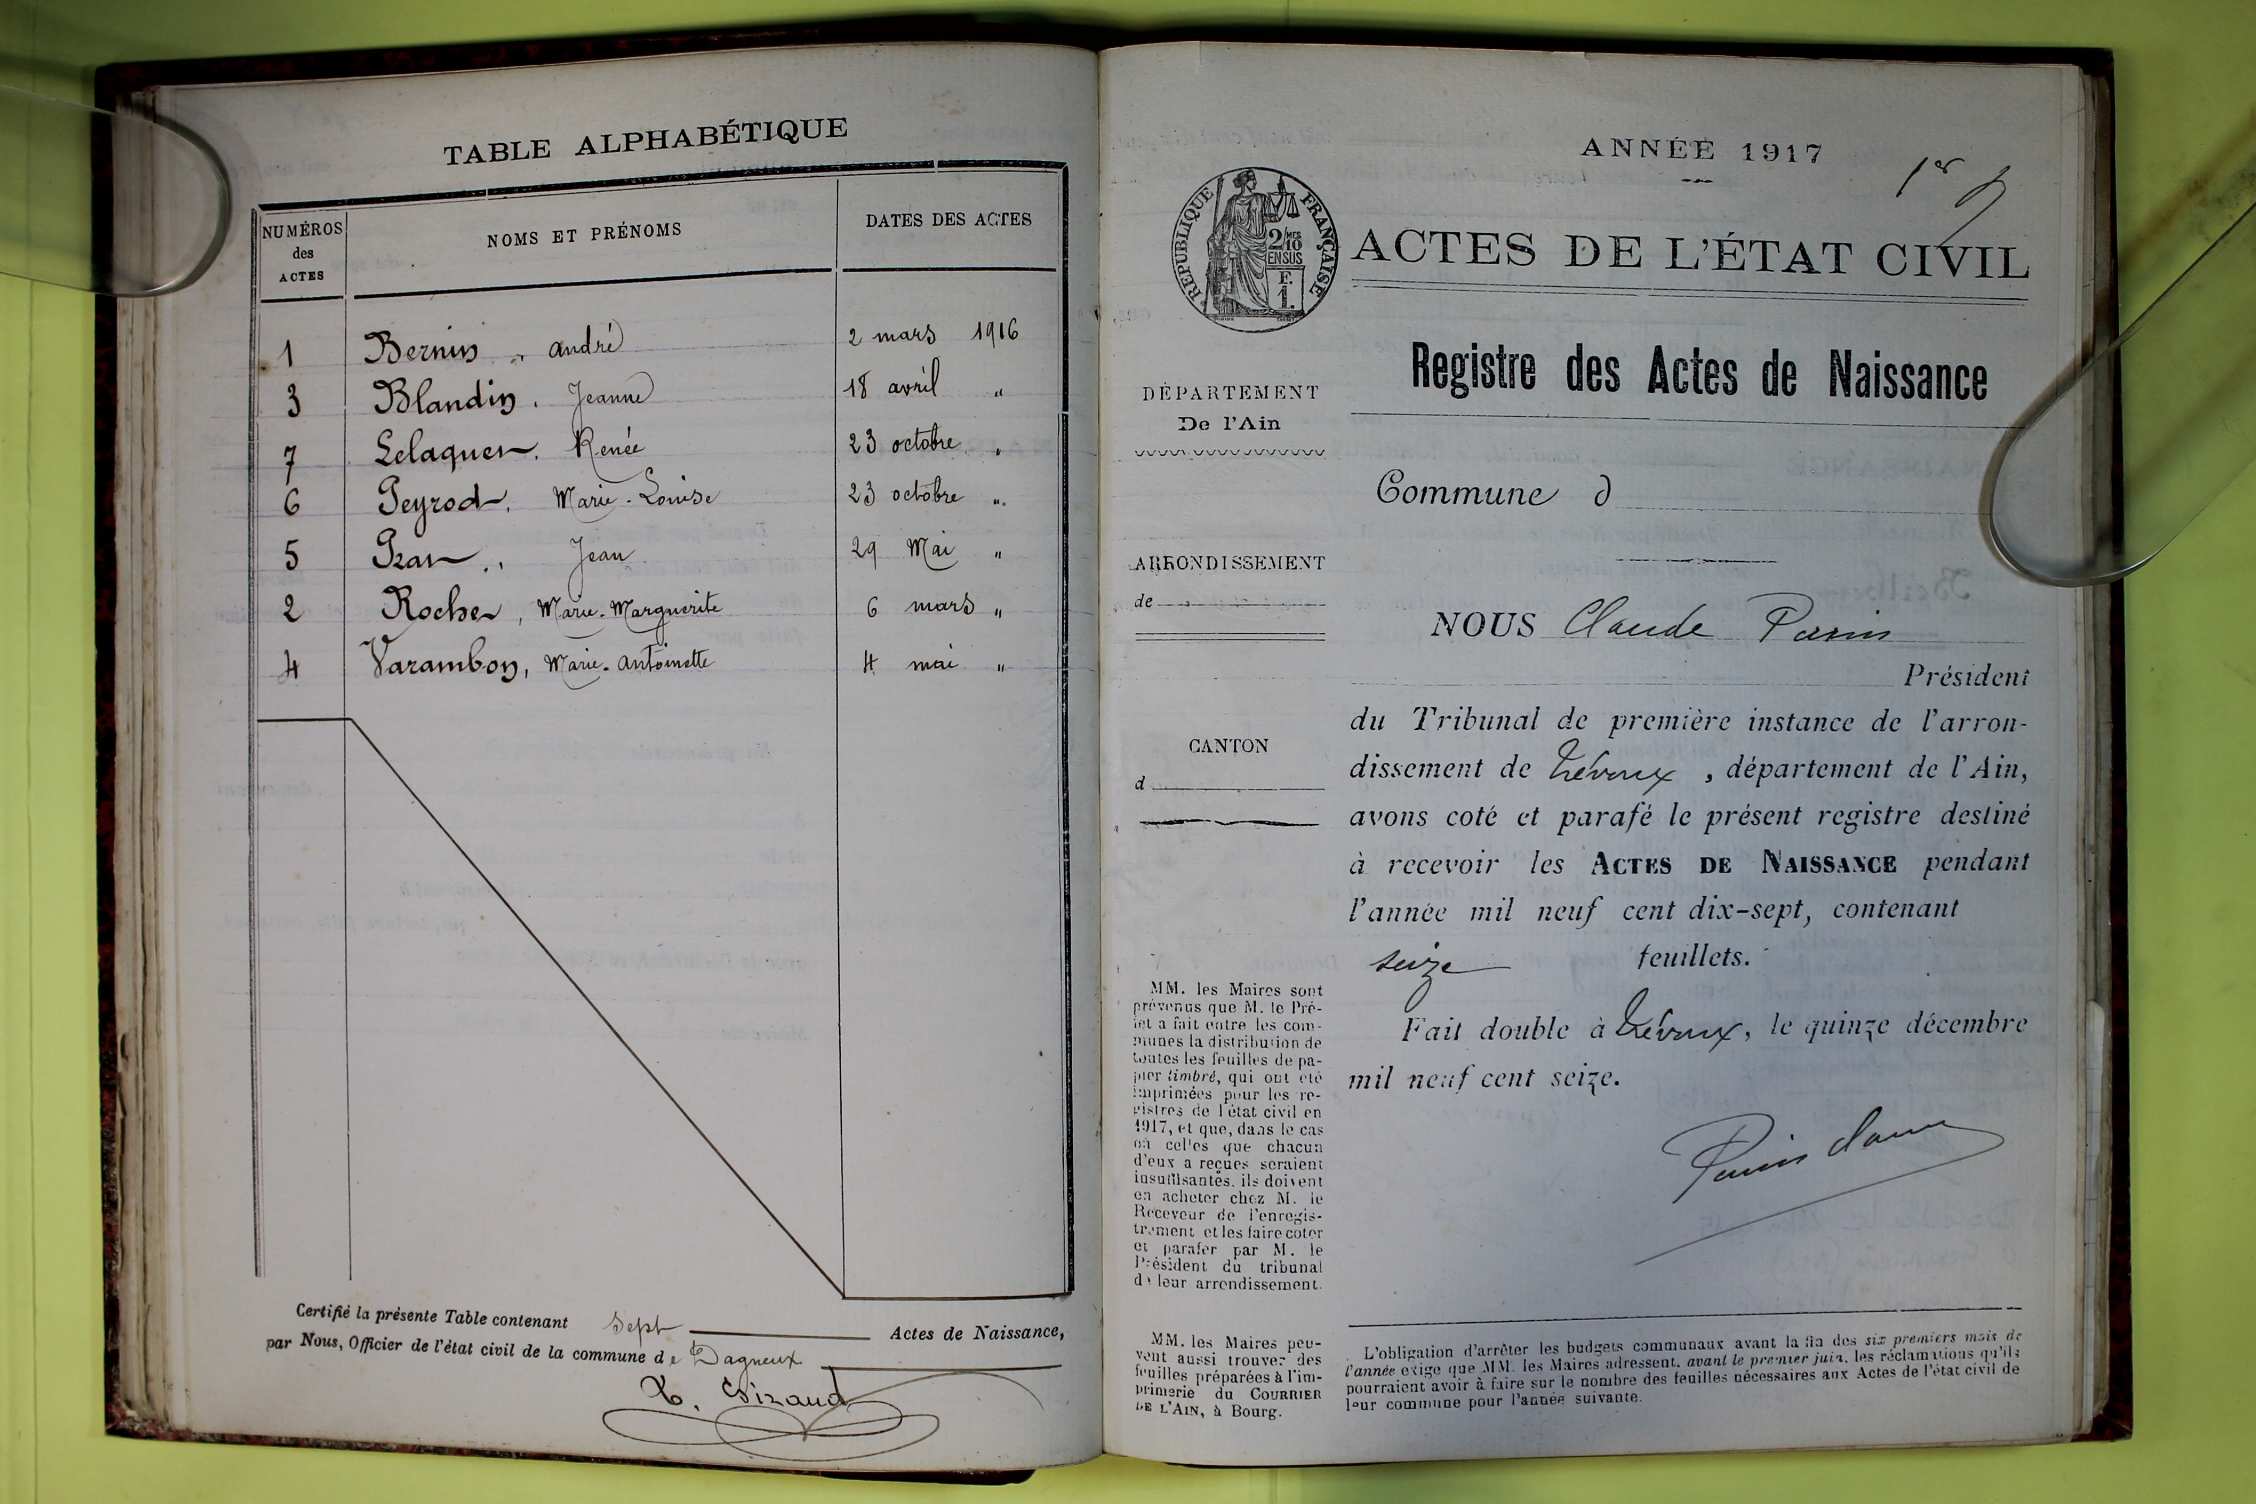 TABLE ALPHABÉTIQUE
NUMÉROS des ACTES
NOMS ET PRÉNOMS
DATES DES ACTES
1 Bernin, André 2 mars 1916
3 Blandin, Jeanne 18 avril "
7 Renée 23 octobre "
6 Peyrod, Marie-Louise 23 octobre "
5 Jean 29 Mai "
2 Roche, Marie-Marguerite 6 mars "
4 Varambon, Marie-Antoinette 4 mai "
Certifié la présente Table contenant sept Actes de Naissance,
par Nous, Officier de l'état civil de la commune de Dagneux
ANNÉE 1917
1er
RÉPUBLIQUE FRANÇAISE
2/10 MES EN SUS
F. 1.
ACTES DE L'ÉTAT CIVIL
Registre des Actes de Naissance
DÉPARTEMENT
De l'Ain
Commune d
ARRONDISSEMENT
de
NOUS Claude Perrin
Président
CANTON
d
du Tribunal de première instance de l'arron-
dissement de Trévoux, département de l'Ain,
avons coté et parafé le présent registre destiné
à recevoir les ACTES DE NAISSANCE pendant
l'année mil neuf cent dix-sept, contenant
seize feuillets.
Fait double à Trévoux, le quinze décembre
mil neuf cent seize.
MM. les Maires sont
prévenus que M. le Pré-
fet a fait entre les com-
munes la distribution de
toutes les feuilles de pa-
pier timbré, qui ont été
imprimées pour les re-
gistres de l'état civil en
1917, et que, dans le cas
où celles que chacun
d'eux a reçues seraient
insuffisantes, ils doivent
en acheter chez M. le
Receveur de l'enregis-
trement et les faire coter
et parafer par M. le
Président du tribunal
de leur arrondissement.
MM. les Maires peu-
vent aussi trouver des
feuilles préparées à l'im-
primerie du COURRIER
DE L'AIN, à Bourg.
L'obligation d'arrêter les budgets communaux avant la fin des six premiers mois de
l'année exige que MM. les Maires adressent, avant le premier juin, les réclamations qu'ils
pourraient avoir à faire sur le nombre des feuilles nécessaires aux Actes de l'état civil de
leur commune pour l'année suivante.